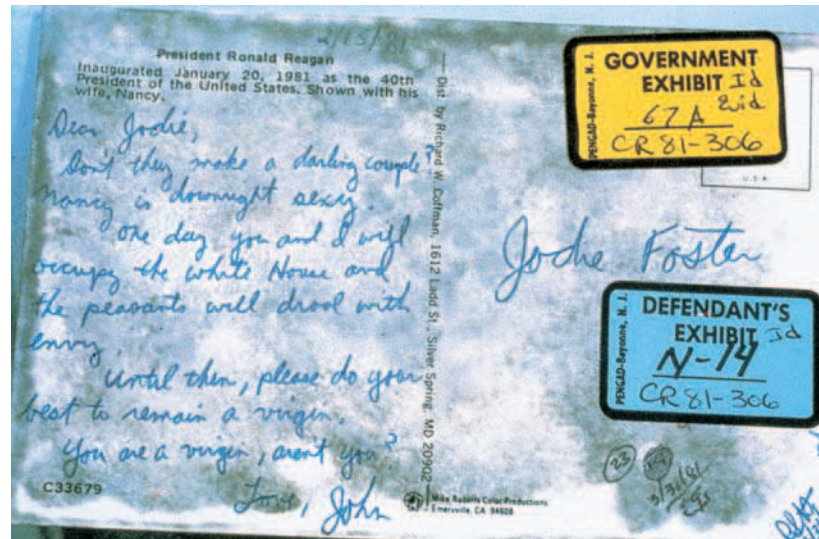 2/15/81
President Ronald Reagan
Inaugurated January 20, 1981 as the 40th
President of the United States. Shown with his
wife, Nancy.
Dear Jodie,
Don't they make a darling couple?
Nancy is downright sexy.
One day you and I will
occupy the White House and
the peasants will drool with
envy.
Until then, please do your
best to remain a virgin.
You are a virgin, aren't you?
Love, John
C33679
Dist. by Richard W. Coffman, 1612 Ladd St., Silver Spring, MD 20902
Mike Roberts Color Productions
Emeryville, CA 94608
PENGAD-Bayonne, N. J.
GOVERNMENT
EXHIBIT Id
Evid
67A
CR 81-306
U.S.A.
Jodie Foster
PENGAD-Bayonne, N. J.
DEFENDANT'S
EXHIBIT Id
N-14
CR 81-306
23
3/30/81